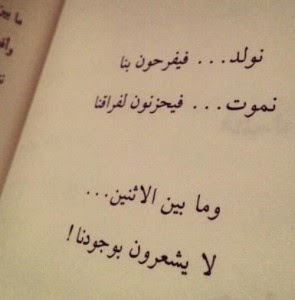 نولد... فيفرحون بنا
نموت... فيحزنون لفراقنا
وما بين الاثنين...
لا يشعرون بوجودنا !
ما بين